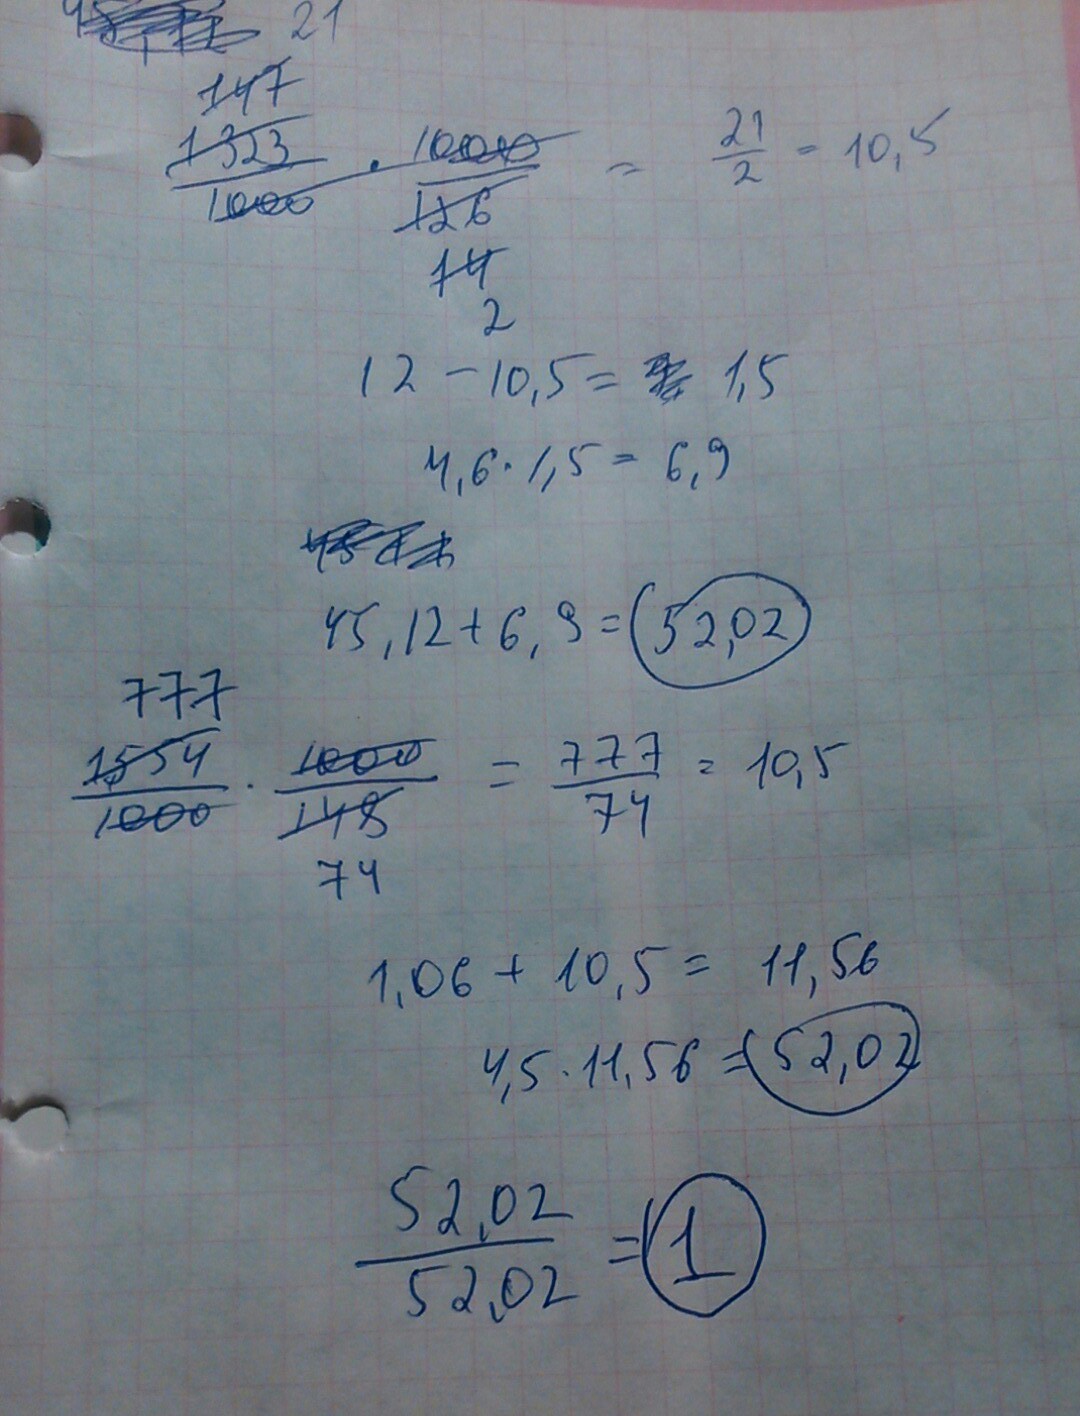 21
147
1323/1000 · 1000/126 = 21/2 = 10,5
14
2
12 - 10,5 = 1,5
4,6 · 1,5 = 6,9
45,12 + 6,9 = 52,02
777
1554/1000 · 1000/148 = 777/74 = 10,5
74
1,06 + 10,5 = 11,56
4,5 · 11,56 = 52,02
52,02/52,02 = 1